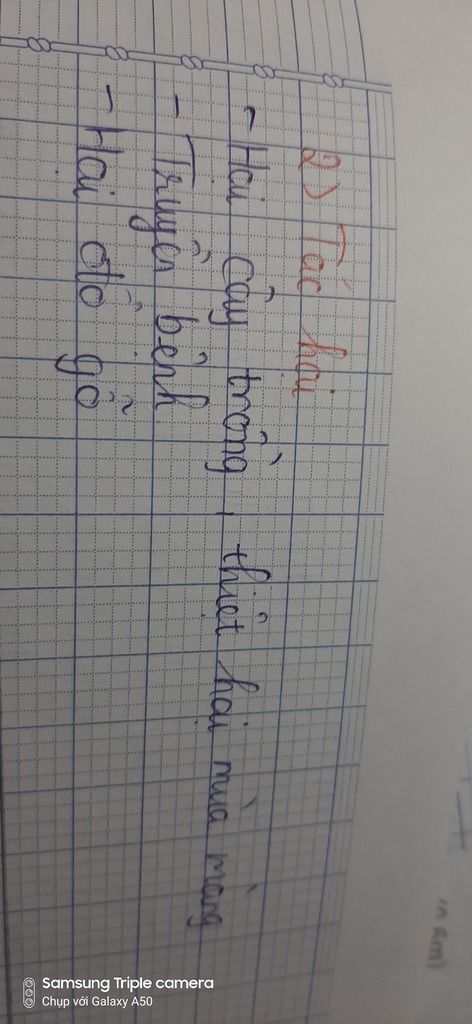 2) Tác hại
- Hại cây trồng, thiệt hại mùa màng
- Truyền bệnh
- Hại đồ gỗ
Samsung Triple camera
Chụp với Galaxy A50